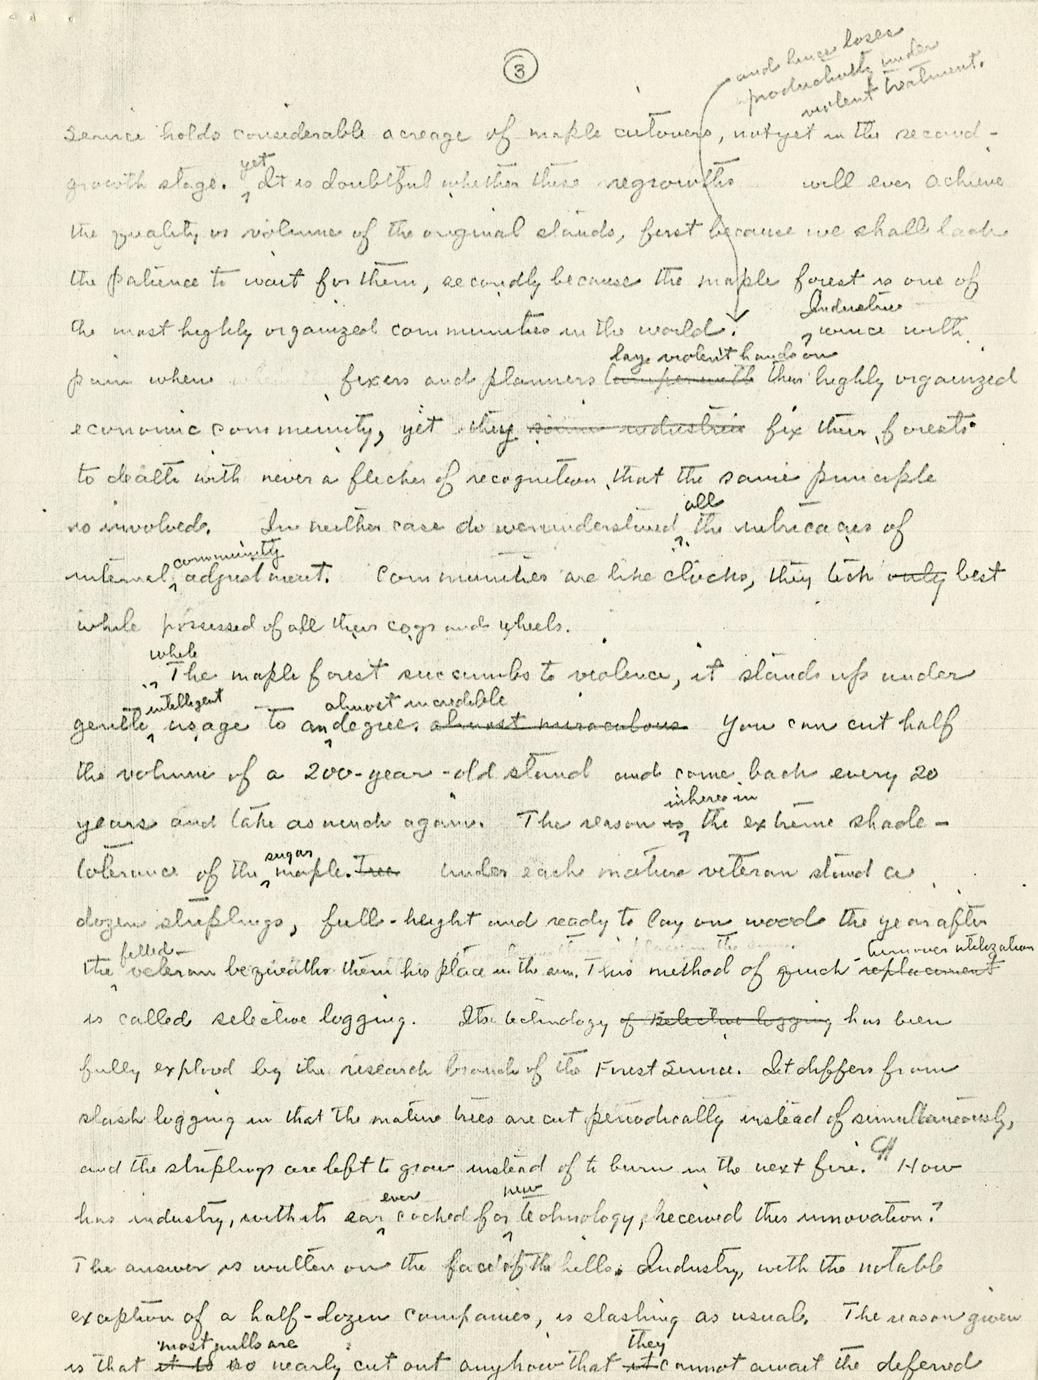 3
and hence loses
productivity under
violent treatment.
Service holds considerable acreage of maple cutovers, not yet in the second-
yet
growth stage. It is doubtful whether these regrowths will ever achieve
the quality or volume of the original stands, first because we shall lack
the patience to wait for them, secondly because the maple forest is one of
Industries
the most highly organized communities in the world. wince with
lay violent hands on
pain when fixers and planners tamper with their highly organized
economic community, yet they some industries fix their forests
to death with never a flicker of recognition that the same principle
all
is involved. In neither case do we understand the intricacies of
community
internal adjustment. Communities are like clocks, they tick only best
while possessed of all their cogs and wheels.
while
The maple forest succumbs to violence, it stands up under
intelligent almost incredible
gentle usage to an degree. almost miraculous You can cut half
the volume of a 200-year-old stand and come back every 20
inheres in
years and take as much again. The reason is the extreme shade-
sugar
tolerance of the maple. Tree Under each mature veteran stand a
dozen striplings, full-height and ready to lay on wood the year after
felled turnover utilization
the veteran bequeaths them his place in the sun. This method of quick replacement
is called selective logging. Its technology of selective logging has been
fully explored by the research branch of the Forest Service. It differs from
slash logging in that the mature trees are cut periodically instead of simultaneously,
and the striplings are left to grow instead of to burn in the next fire. How
ever new
has industry, with its ear cocked for technology, received this innovation?
The answer is written on the face of the hills. Industry, with the notable
exception of a half-dozen companies, is slashing as usual. The reason given
most mills are they
is that it is so nearly cut out anyhow that it cannot await the deferred